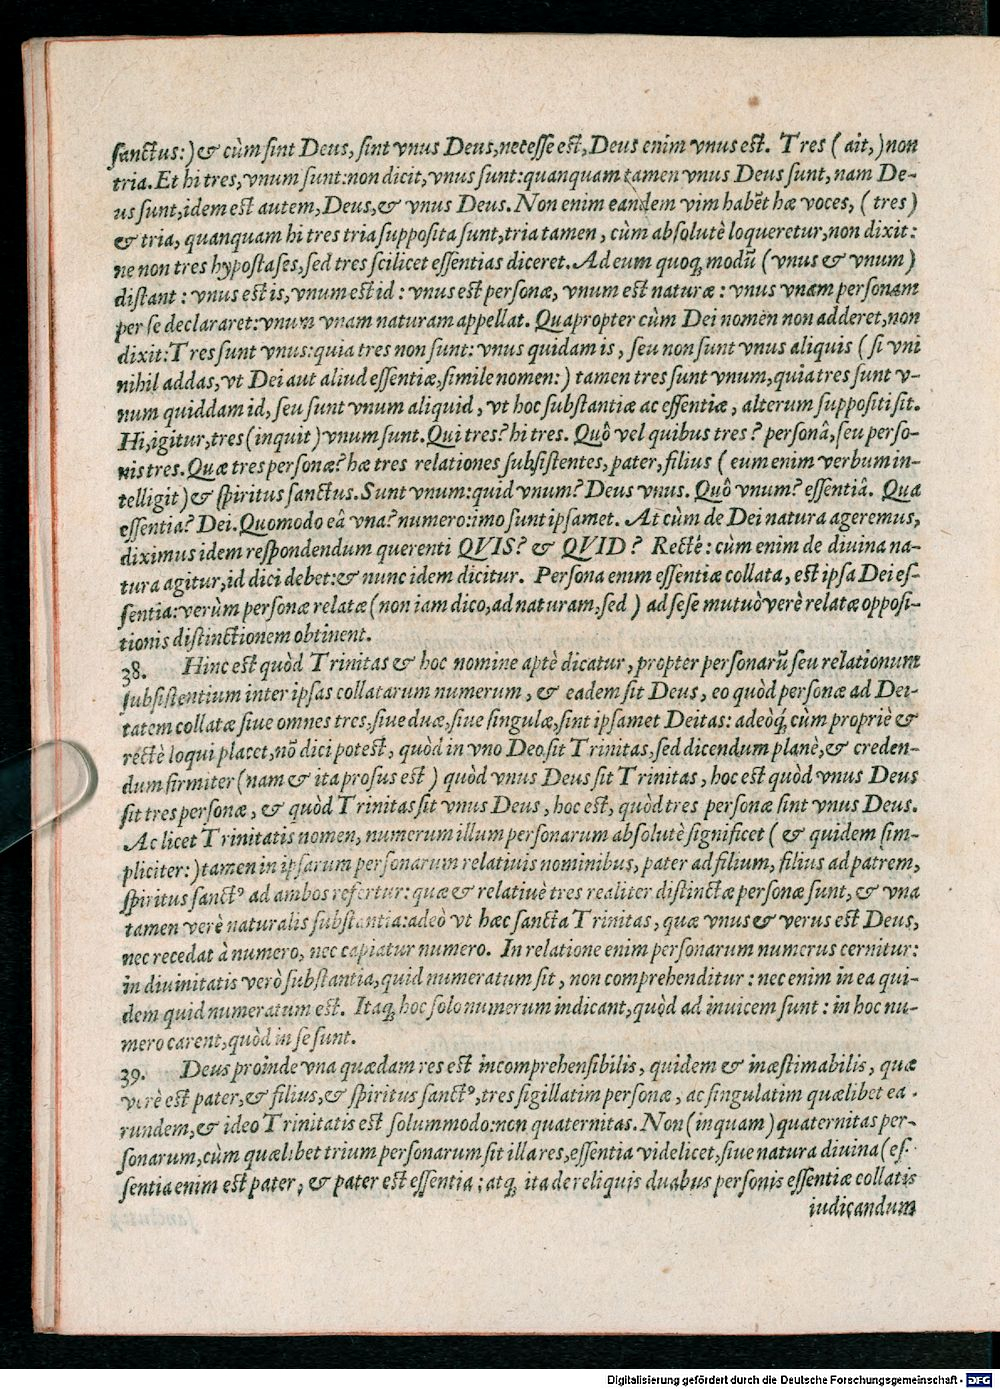 sanctus:) & cùm sint Deus, sint vnus Deus, necesse est, Deus enim vnus est. Tres ( ait, ) non
tria. Et hi tres, vnum sunt: non dicit, vnus sunt: quanquam tamen vnus Deus sunt, nam De-
us sunt, idem est autem, Deus, & vnus Deus. Non enim eandem vim habēt hæ voces, ( tres )
& tria, quanquam hi tres tria supposita sunt, tria tamen, cùm absolutè loqueretur, non dixit:
ne non tres hypostases, sed tres scilicet essentias diceret. Ad eum quoq; modū ( vnus & vnum )
distant : vnus est is, vnum est id : vnus est personæ, vnum est naturæ : vnus vnam personam
per se declararet: vnum vnam naturam appellat. Quapropter cùm Dei nomen non adderet, non
dixit: Tres sunt vnus: quia tres non sunt: vnus quidam is, seu non sunt vnus aliquis ( si vni
nihil addas, vt Dei aut aliud essentiæ, simile nomen: ) tamen tres sunt vnum, quia tres sunt v-
num quiddam id, seu sunt vnum aliquid, vt hoc substantiæ ac essentiæ, alterum suppositi sit.
Hi, igitur, tres ( inquit ) vnum sunt. Qui tres? hi tres. Quô vel quibus tres? personâ, seu perso-
nis tres. Quæ tres personæ? hæ tres relationes subsistentes, pater, filius ( eum enim verbum in-
telligit ) & spiritus sanctus. Sunt vnum: quid vnum? Deus vnus. Quô vnum? essentiâ. Qua
essentia? Dei. Quomodo eâ vna? numero: imo sunt ipsamet. At cùm de Dei natura ageremus,
diximus idem respondendum querenti QVIS? & QVID? Rectè: cùm enim de diuina na-
tura agitur, id dici debet: & nunc idem dicitur. Persona enim essentiæ collata, est ipsa Dei es-
sentia: verùm personæ relatæ ( non iam dico, ad naturam, sed ) ad sese mutuò verè relatæ opposi-
tionis distinctionem obtinent.
38. Hinc est quòd Trinitas & hoc nomine aptè dicatur, propter personarū seu relationum
subsistentium inter ipsas collatarum numerum, & eadem sit Deus, eo quòd personæ ad Dei-
tatem collatæ siue omnes tres, siue duæ, siue singulæ, sint ipsamet Deitas: adeòq; cùm propriè &
rectè loqui placet, nō dici potest, quòd in vno Deo sit Trinitas, sed dicendum planè, & creden-
dum firmiter ( nam & ita prosus est ) quòd vnus Deus sit Trinitas, hoc est quòd vnus Deus
sit tres personæ, & quòd Trinitas sit vnus Deus, hoc est, quòd tres personæ sint vnus Deus.
Ac licet Trinitatis nomen, numerum illum personarum absolutè significet ( & quidem sim-
pliciter: ) tamen in ipsarum personarum relatiuis nominibus, pater ad filium, filius ad patrem,
spiritus sanctꝰ ad ambos refertur: quæ & relatiuè tres realiter distinctæ personæ sunt, & vna
tamen verè naturalis substantia: adeò vt hæc sancta Trinitas, quæ vnus & verus est Deus,
nec recedat à numero, nec capiatur numero. In relatione enim personarum numerus cernitur:
in diuinitatis verò substantia, quid numeratum sit, non comprehenditur : nec enim in ea qui-
dem quid numeratum est. Itaq; hoc solo numerum indicant, quòd ad inuicem sunt : in hoc nu-
mero carent, quòd in se sunt.
39. Deus proinde vna quædam res est incomprehensibilis, quidem & inæstimabilis, quæ
verè est pater, & filius, & spiritus sanctꝰ, tres sigillatim personæ, ac singulatim quælibet ea-
rundem, & ideo Trinitatis est solummodo: non quaternitas. Non ( inquam ) quaternitas per-
sonarum, cùm quælibet trium personarum sit illa res, essentia videlicet, siue natura diuina ( es-
sentia enim est pater, & pater est essentia ; atq; ita de reliquis duabus personis essentiæ collatis
iudicandum
Digitalisierung gefördert durch die Deutsche Forschungsgemeinschaft - DFG